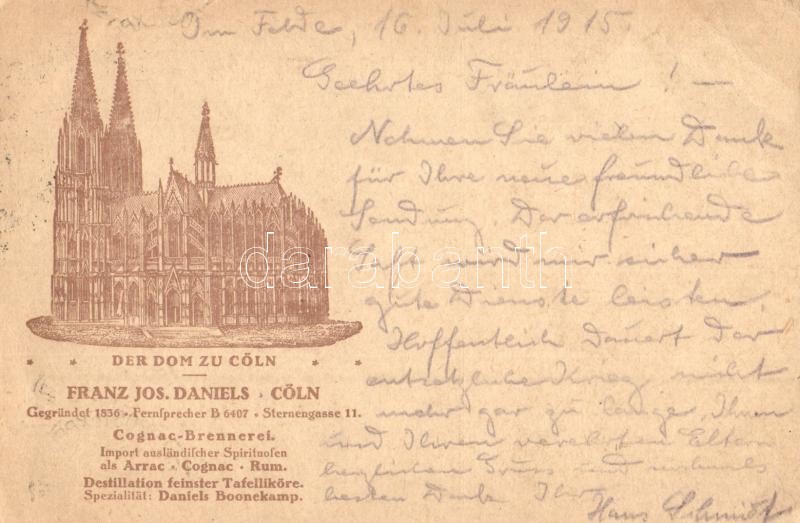 Im Felde, 16. Juli 1915.
Geehrtes Fräulein! —
Nehmen Sie vielen Dank
für Ihre neue freundliche
Sendung. Der erfrischende
Saft wird mir sicher
gute Dienste leisten.
Hoffentlich dauert der
entsetzliche Krieg nicht
mehr gar zu lange. Ihnen
und Ihren verehrten Eltern
herzlichen Gruss und nochmals
besten Dank Ihr
Hans Schmidt
darabanth
DER DOM ZU CÖLN
FRANZ JOS. DANIELS · CÖLN
Gegründet 1836 · Fernsprecher B 6407 · Sternengasse 11.
Cognac-Brennerei.
Import ausländischer Spirituosen
als Arrac · Cognac · Rum.
Destillation feinster Tafelliköre.
Spezialität: Daniels Boonekamp.